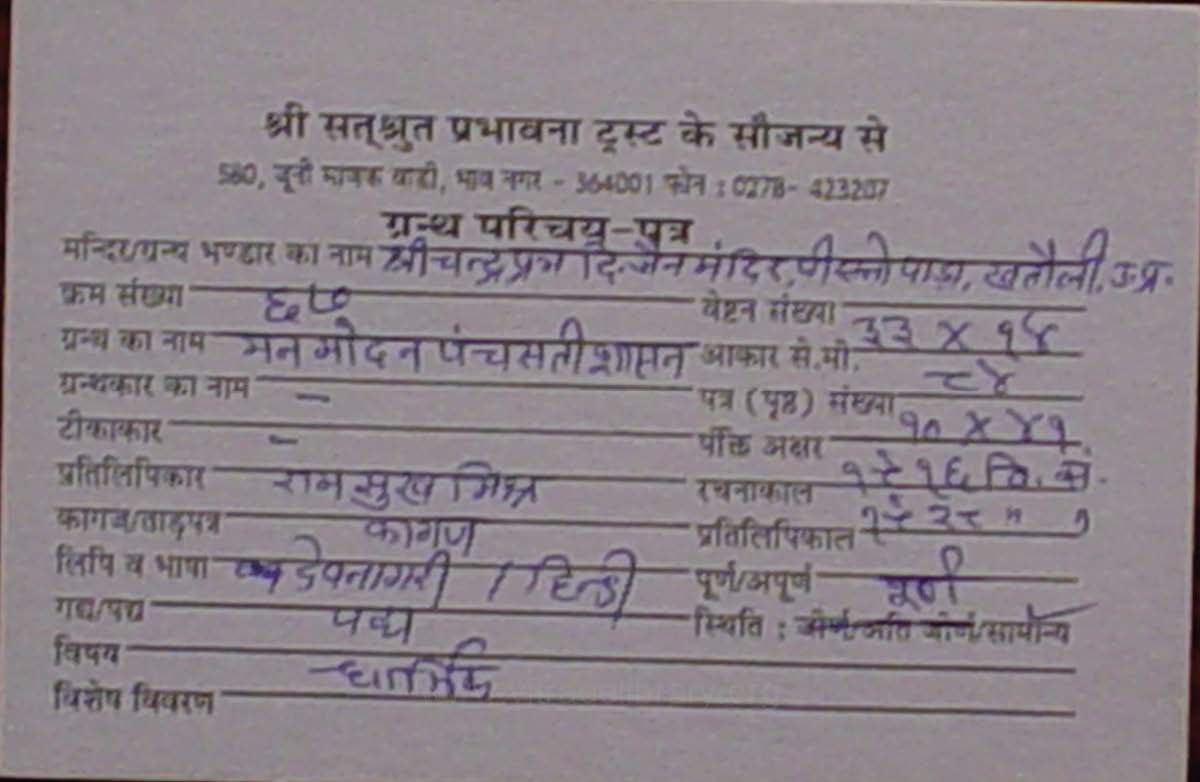 श्री सत्श्रुत प्रभावना ट्रस्ट के सौजन्य से
580, जूनी माणेक वाडी, भाव नगर - 364001 फोन : 0278- 423207
ग्रन्थ परिचय-पत्र
मन्दिर/ग्रन्थ भण्डार का नाम श्री चन्द्रप्रभ दि. जैन मंदिर, पाड़ा, खतौली, उ.प्र.
क्रम संख्या ६७ वेष्टन संख्या
ग्रन्थ का नाम मनमोदन पंचसती शासन आकार से.मी. ३३ X १४
ग्रन्थकार का नाम – पत्र (पृष्ठ) संख्या ८४
टीकाकार – पंक्ति अक्षर १० X ४१
प्रतिलिपिकार रामसुख मिश्र रचनाकाल १९१६ वि. सं.
कागज/ताड़पत्र कागज प्रतिलिपिकाल १९२८ " "
लिपि व भाषा देवनागरी / हिन्दी पूर्ण/अपूर्ण पूर्ण
गद्य/पद्य पद्य स्थिति : जीर्ण/अति जीर्ण/सामान्य
विषय धार्मिक
विशेष विवरण